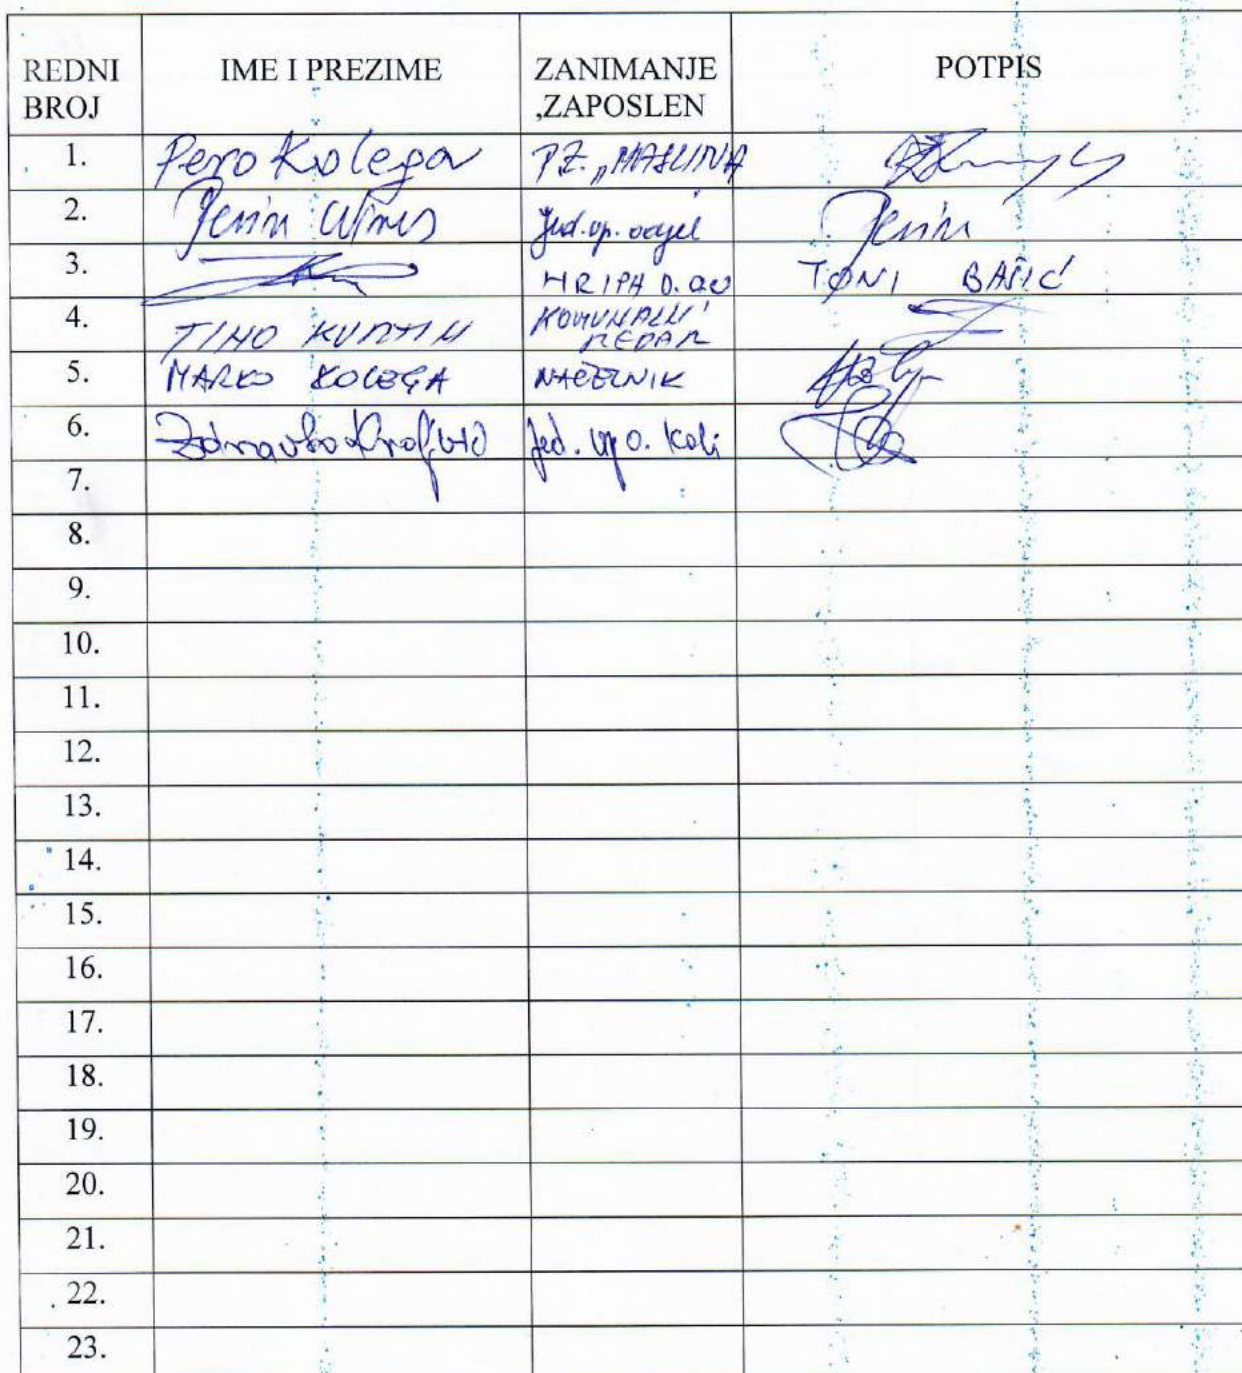 REDNI BROJ IME I PREZIME ZANIMANJE ,ZAPOSLEN POTPIS
1. Pero Kolega P.Z. „MASLINA
2. Jed. up. odjel
3. D.O.O TONI BAŠIĆ
4. TINO KURTIN KOMUNALNI REDAR
5. MARKO KOLEGA NAČELNIK
6. Zdravko Kraljević Jed. up o. Kali
7.
8.
9.
10.
11.
12.
13.
14.
15.
16.
17.
18.
19.
20.
21.
22.
23.